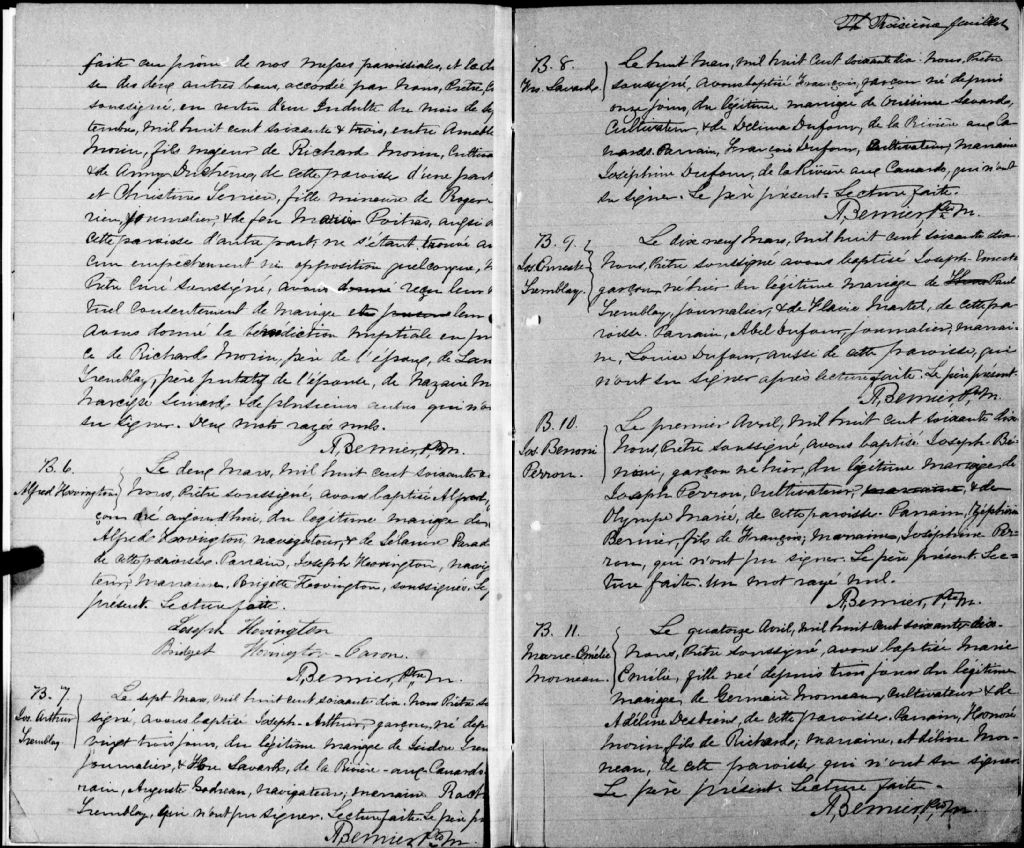 faite au prône de nos messes paroissiales, et la dis
se des deux autres bans, accordée par Nous, Prêtre, C
soussigné, en vertu d'un Indult du mois de Sep
tembre, mil huit cent soixante & trois, entre
Morin, fils majeur de Richard Morin, Cultiva
& de Anny Duchêne, de cette paroisse d'une part
et Christine Terrien, fille mineure de Roger
rien, journalier & de feu Marie Poitras, aussi d
cette paroisse d'autre part; ne s'étant trouvé au
cun empêchement ni opposition quelconque, N
Prêtre Curé soussigné, avons donné reçu leur
tuel consentement de mariage et leur
avons donné la bénédiction nuptiale en pr
ce de Richard Morin, père de l'époux, de
Tremblay, père putatif de l'épouse, de Nazaire M
Narcisse Simard, & de plusieurs autres qui n'o
su signer. Deux mots rayés nuls.
A, Bernier, Ptre M.
B. 6.
Alfred Hovington
Le deux Mars, mil huit cent soixante
Nous, Prêtre soussigné, avons baptisé Alfred,
çon né aujourd'hui, du légitime mariage de
Alfred Hovington, navigateur, & de Parad
de cette paroisse. Parrain, Joseph Hovington, navig
teur; Marraine, Brigitte Hovington, soussignés. Le
présent. Lecture faite.
Joseph Hovington
Bridget Hovington-Caron.
A, Bernier, Ptre M.
B. 7.
Jos. Arthur
Tremblay.
Le sept Mars, mil huit cent soixante dix. Nous Prêtre so
signé, avons baptisé Joseph-Arthur, garçon, né dep
vingt trois jours, du légitime mariage de Isidore Trem
journalier, & Savard, de la Rivière-aux-Canards
rain, Auguste Godreau, navigateur; marraine
Tremblay, qui n'ont pu signer. Lecture faite. Le père pr
A, Bernier, Ptre M.
Troisième feuillet
B. 8.
Frs. Savard.
Le huit Mars, mil huit cent soixante dix. Nous, Prêtre
soussigné, avons baptisé François, garçon né depuis
onze jours, du légitime mariage de Onésime Savard,
Cultivateur, & de Délima Dufour, de la Rivière aux Ca-
nards. Parrain, François Dufour, Cultivateur, marraine
Joséphine Dufour, de la Rivière aux Canards, qui n'ont
su signer. Le père présent. Lecture faite.
A, Bernier, Ptre M.
B. 9.
Jos. Erneste
Tremblay.
Le dix neuf Mars, mil huit cent soixante dix.
Nous, Prêtre soussigné avons baptisé Joseph-Erneste
garçon né hier du légitime mariage de Paul
Tremblay, journalier, & de Flavie Martel, de cette pa-
roisse. Parrain, Abel Dufour, journalier, marrai-
ne, Louise Dufour, aussi de cette paroisse, qui
n'ont su signer après lecture faite. Le père présent
A, Bernier, Ptre M.
B. 10.
Jos. Benoni
Perron.
Le premier Avril, mil huit cent soixante dix
Nous, Prêtre soussigné, avons baptisé Joseph-Be-
noni, garçon né hier, du légitime mariage de
Joseph Perron, cultivateur, & de
Olympe Marié, de cette paroisse. Parrain, Zéphirin
Bernier, fils de François; Marraine, Joséphine Per-
ron, qui n'ont pu signer. Le père présent. Lec-
ture faite. Un mot rayé nul.
A, Bernier, Ptre M.
B. 11.
Marie-Emélie
Morneau.
Le quatorze Avril, mil huit cent soixante dix
Nous, Prêtre soussigné, avons baptisé Marie
Emélie, fille née depuis trois jours du légitime
mariage de Germain Morneau, Cultivateur & de
Adéline Desbiens, de cette paroisse. Parrain, Honoré
Morin, fils de Richard; marraine, Adéline Mor-
neau, de cette paroisse, qui n'ont su signer
Le père présent. Lecture faite.
A, Bernier, Ptre M.